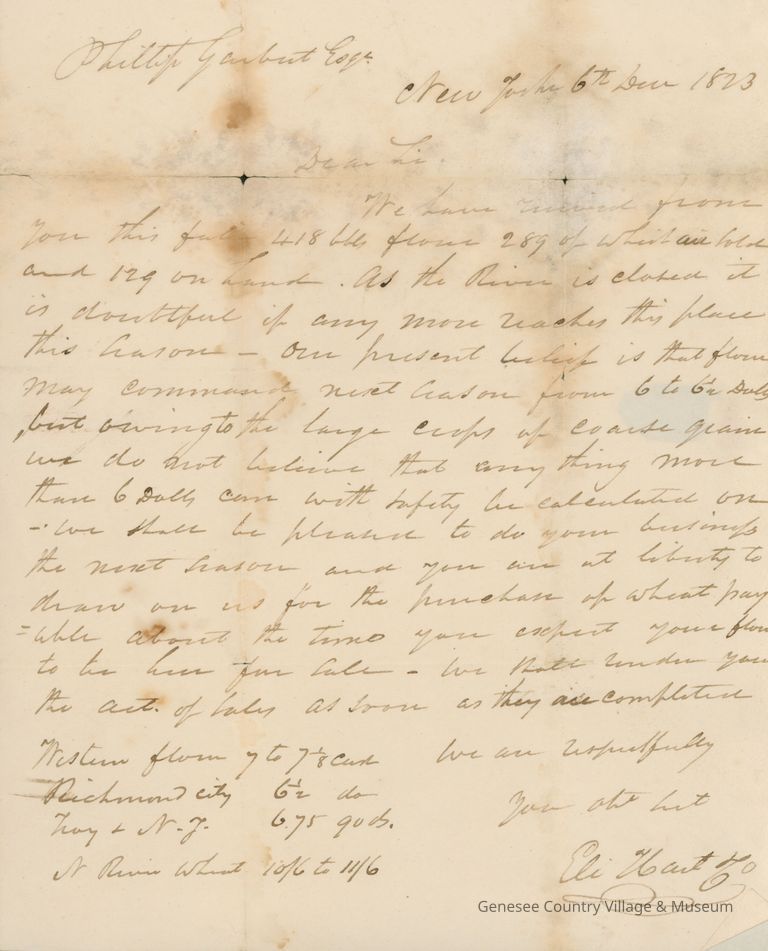 Phillip Garbut Esqr
New York 6th Decr 1823
Dear Sir.
We have received from
you this fall 418 bbls flour 289 of which are sold
and 129 on hand. As the River is closed it
is doubtful if any more reaches this place
this season – Our present belief is that flour
may command next season from 6 to 6½ Dolls
, but owing to the large crops of coarse grain
we do not believe that any thing more
than 6 Dolls can with safety be calculated on
– We shall be pleased to do your business
the next season and you are at liberty to
draw on us for the purchase of wheat pay
=able about the time you expect your flour
to be here for sale – We shall render you
the act. of sales as soon as they are completed
Western flour 7 to 7⅛ cash
We are respectfully
Richmond city 6½ do
Your obt sert
Troy & N.Y. 6.75 90 ds.
Eli Hart & Co
N River Wheat 10/6 to 11/6
Genesee Country Village & Museum